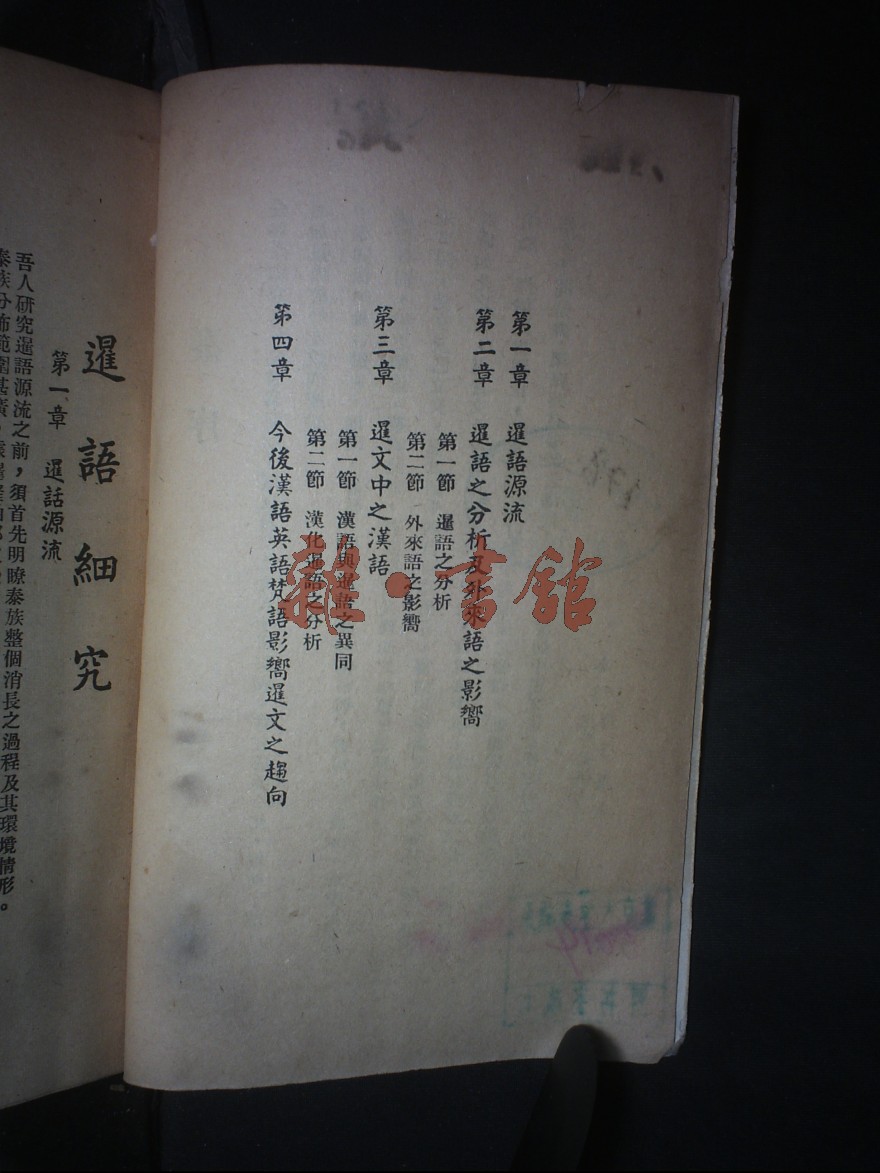 第一章　暹語源流
第二章　暹語之分析及外來語之影嚮
第一節　暹語之分析
第二節　外來語之影嚮
第三章　暹文中之漢語
第一節　漢語與暹語之異同
第二節　漢化暹語之分析
第四章　今後漢語英語梵語影嚮暹文之趨向
暹語細究
第一章　暹話源流
吾人研究暹語源流之前，須首先明瞭泰族整個消長之過程及其環境情形。
泰族分佈範圍甚廣，
雜·書館